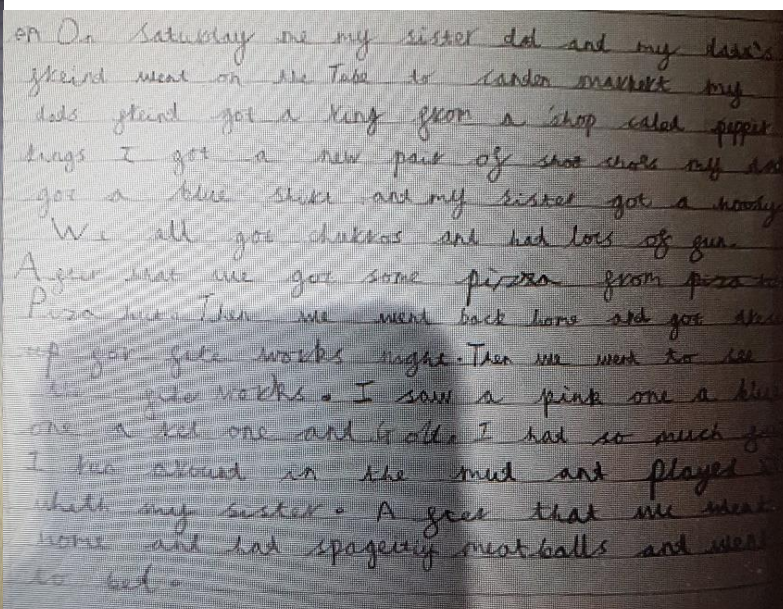 On Saturday me my sister dad and my dad's
freind went on the Tube to Canden markert my
dads freind got a ring from a shop caled pepper
I got a new pair of shoes my
got a blue shirt and my sister got a hoody
We all got and had lots of fun
After that we got some pizza from
Piza hut. Then we went back home and got
up for fire works night. Then we went to see
the fire works. I saw a pink one a
one a red one and Gold. I had so much
I ran around in the mud and played
my sister. After that we went
home and had spagetty meat balls and went
to bed.